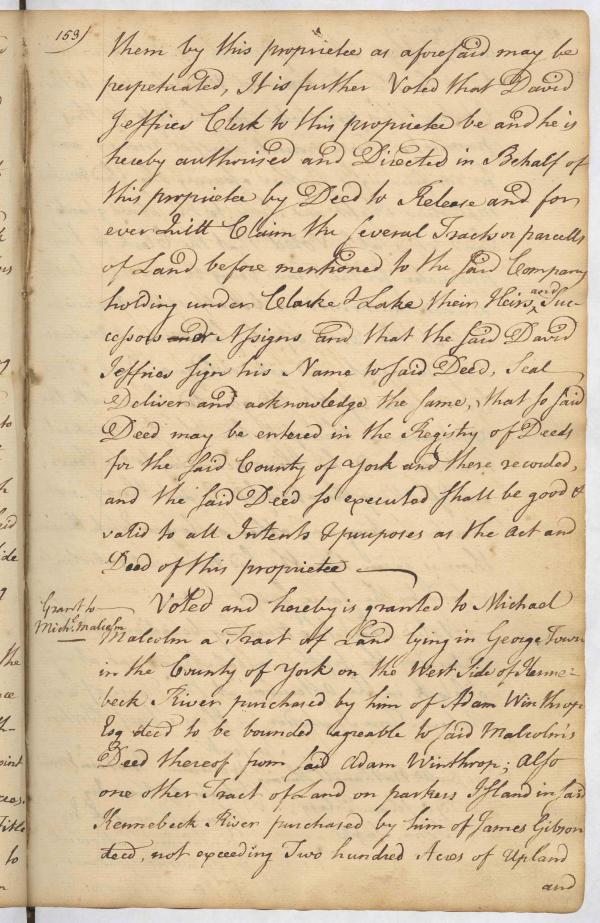 153)
them by this proprietee as aforesaid may be
perpetuated, It is further Voted that David
Jeffries Clerk to this proprietee be and he is
hereby authorised and Directed in Behalf of
this proprietee by Deed to Release and for
ever Quitt Claim the several Tracts or parcells
of Land before mentioned to the said Company
holding under Clarke & Lake their Heirs, and Suc-
cessors and or Assigns and that the said David
Jeffries sign his Name to said Deed, Seal
Deliver and acknowledge the same, that so said
Deed may be entered in the Registry of Deeds
for the said County of York and there recorded,
and the said Deed so executed shall be good &
valid to all Intents & purposes as the Act and
Deed of this proprietee
Grant to
Mich.l Malcolm
Voted and hereby is granted to Michael
Malcolm a Tract of Land lying in George Town
in the County of York on the West Side of Kenne-
beck River purchased by him of Adam Winthrop
Esq deced to be bounded agreable to said Malcolm's
Deed thereof from said Adam Winthrop; also
one other Tract of Land on parkers Island in said
Kennebeck River purchased by him of James Gibson
deced, not exceeding Two hundred Acres of Upland
and